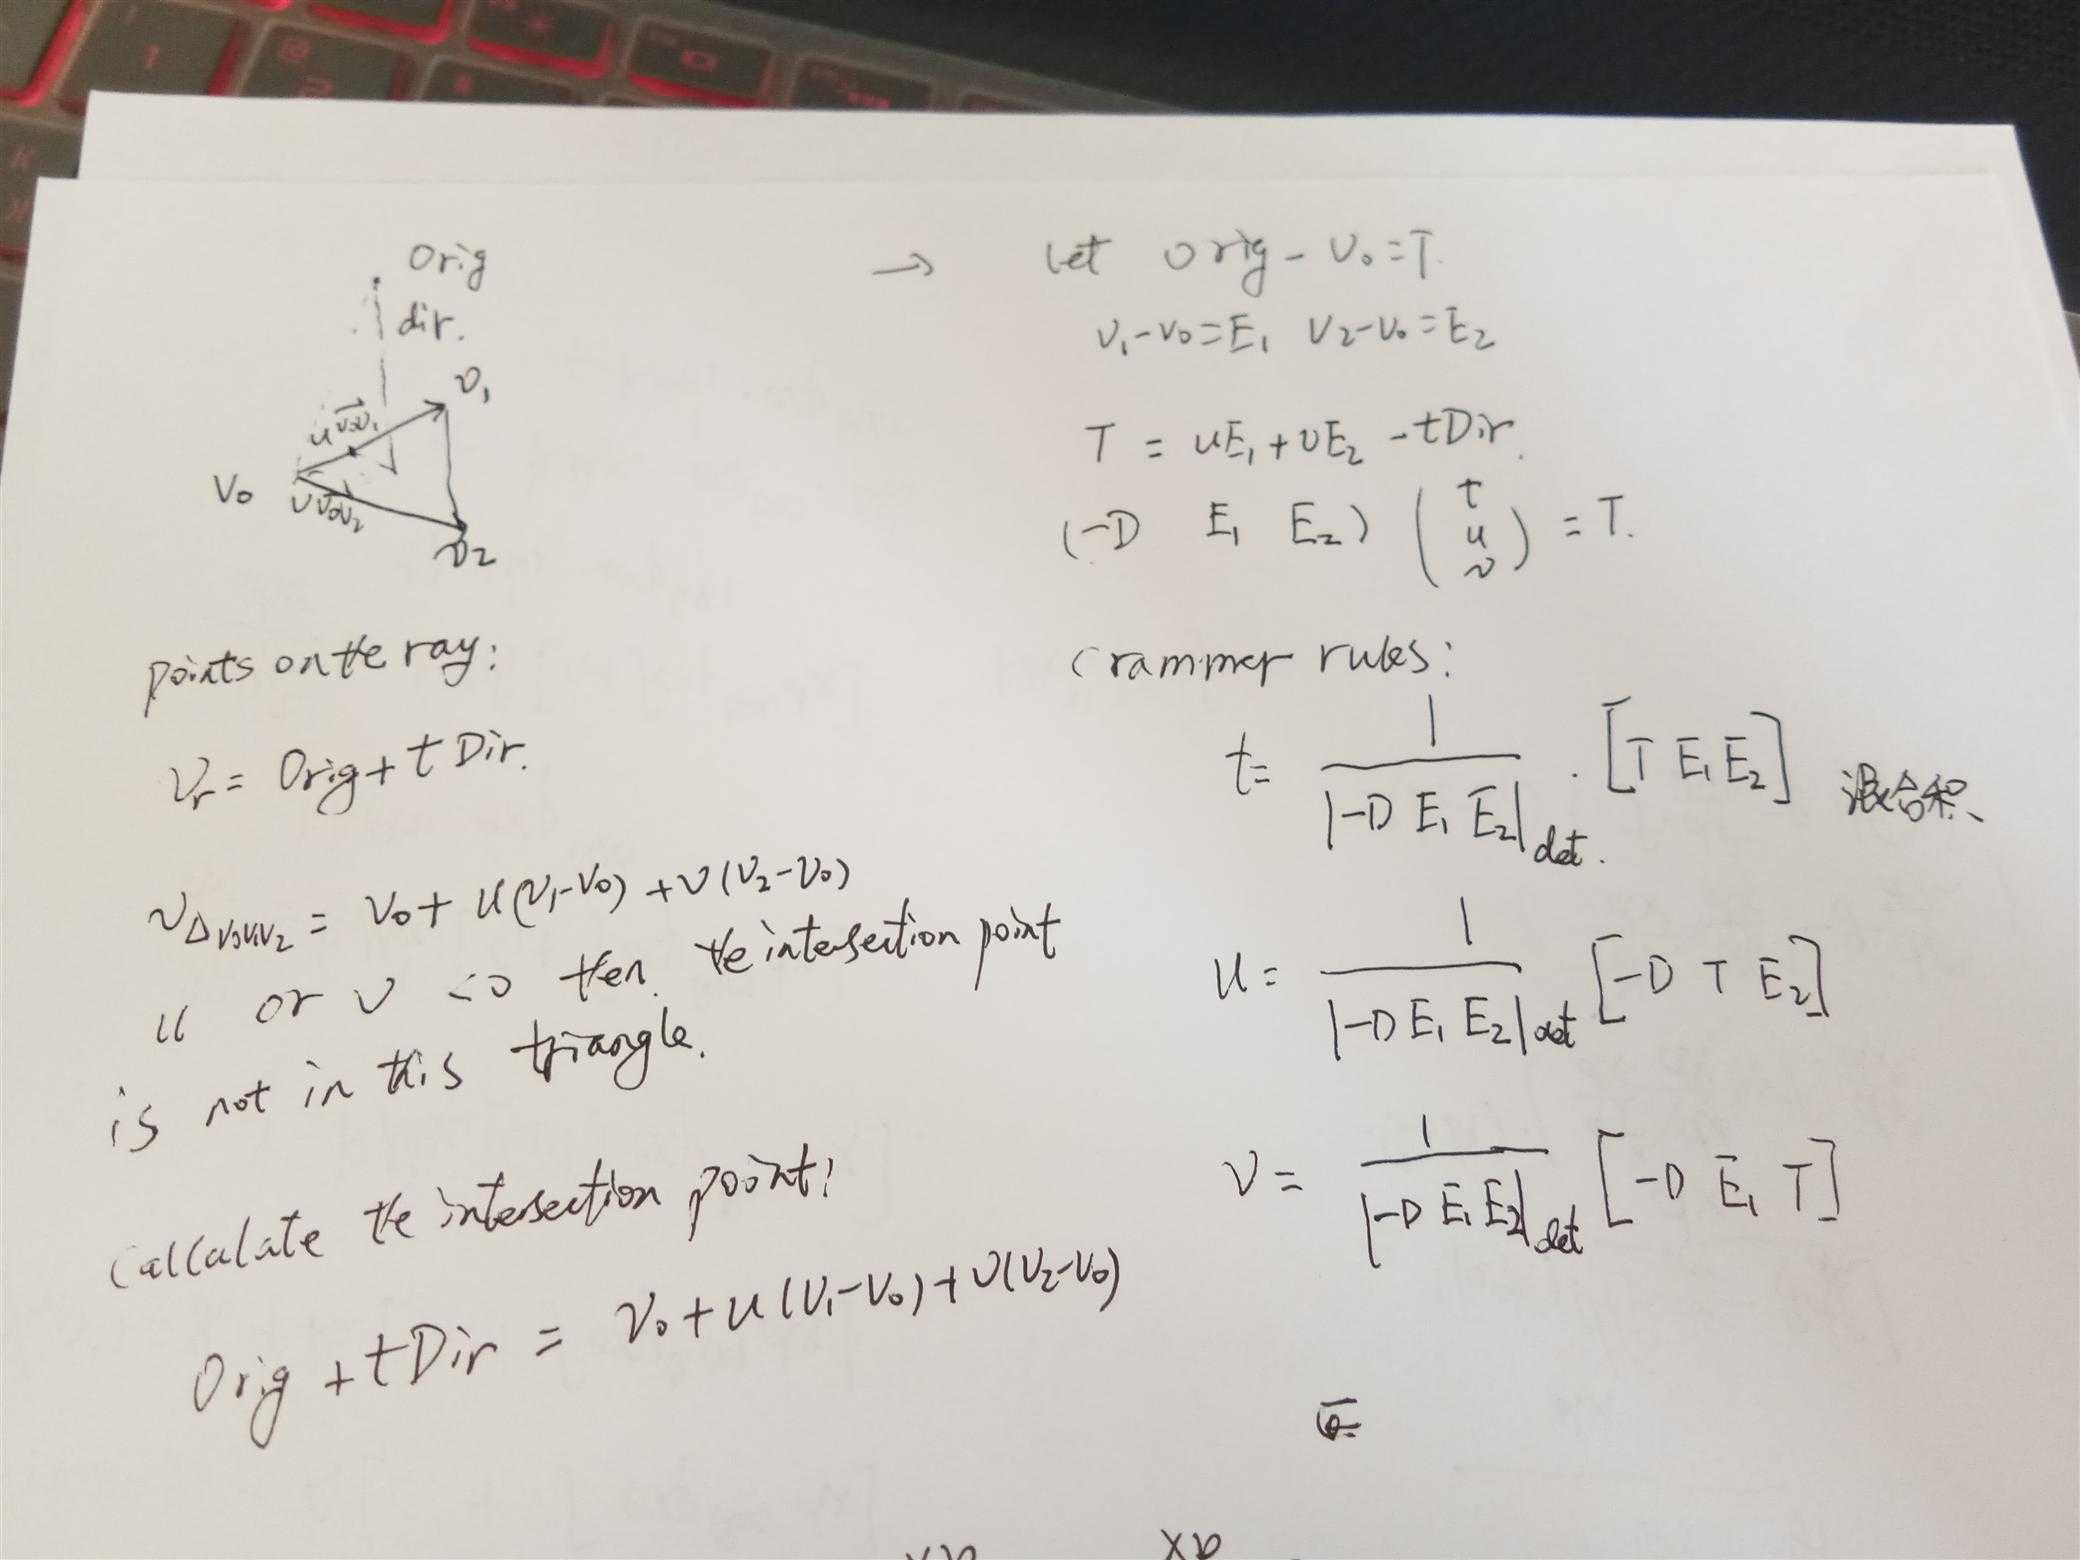 Orig
dir.
v₁
u v₀v₁
V₀
v v₀v₂
v₂
points on the ray:
Vr = Orig + t Dir.
v△v₀v₁v₂ = V₀ + u(v₁-v₀) + v(v₂-v₀)
u or v <0 then the intersection point
is not in this triangle.
Calculate the intersection point:
Orig + tDir = V₀ + u(V₁-V₀) + v(V₂-V₀)
→ let orig - V₀ = T.
v₁-v₀ = E₁ v₂-v₀ = E₂
T = uE₁ + vE₂ - tDir.
(-D E₁ E₂) (t u v) = T.
Crammer rules:
t = 1 / |-D E₁ E₂|det. · [T E₁ E₂] 混合积、
u = 1 / |-D E₁ E₂|det [-D T E₂]
v = 1 / |-D E₁ E₂|det [-D E₁ T]